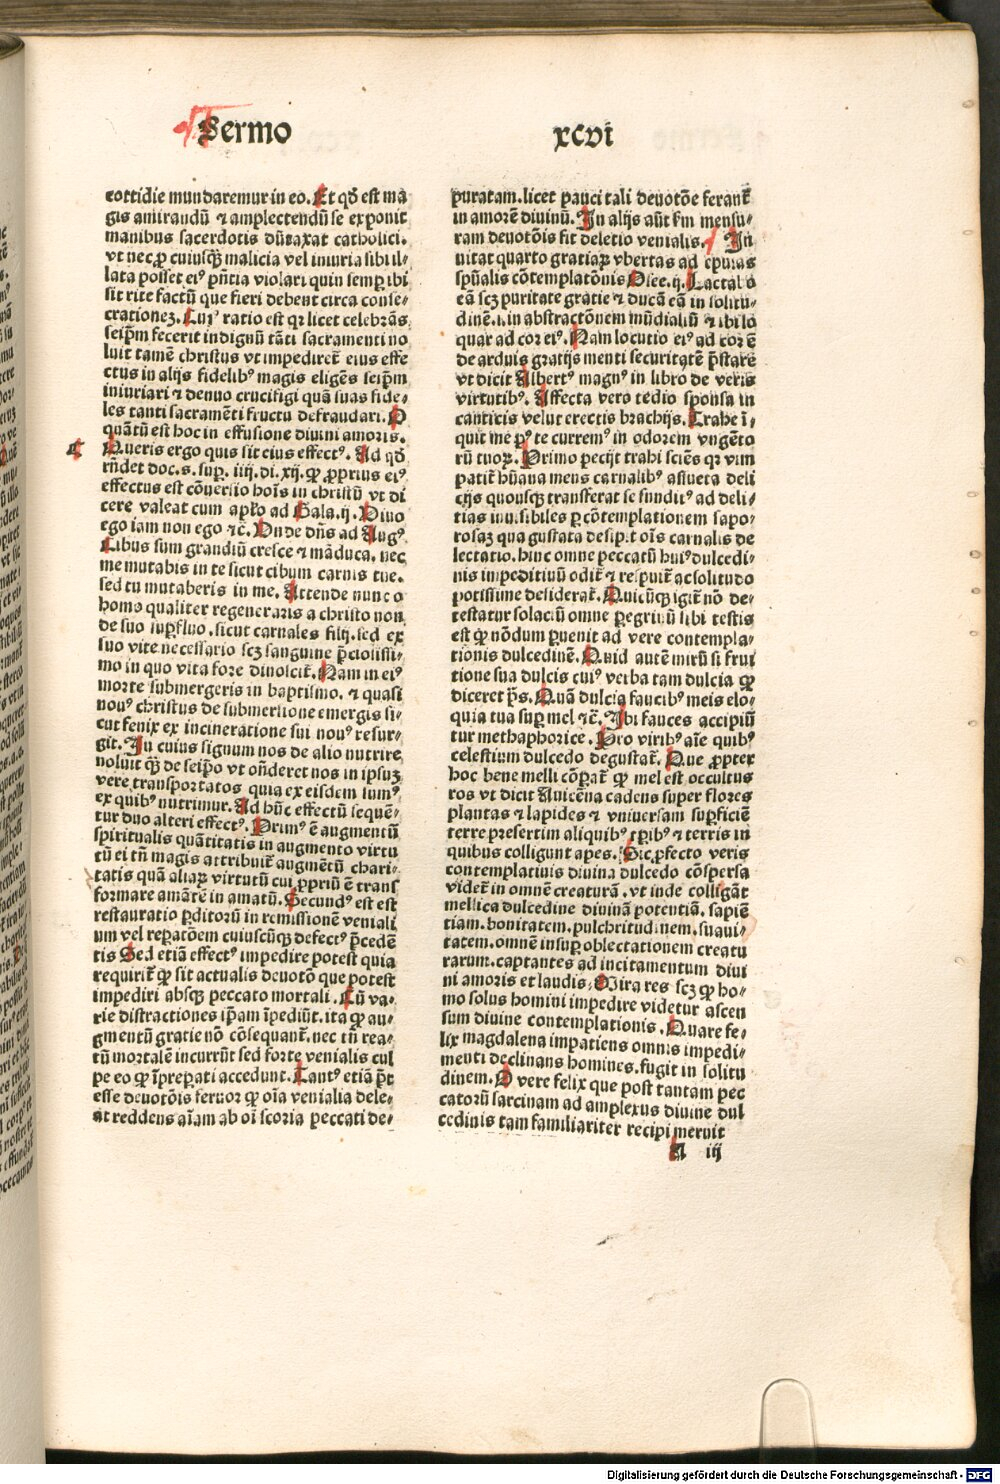 Sermo xcvi
cottidie mundaremur in eo. Et qđ est ma
gis amirandū ⁊ amplectendū se exponit
manibus sacerdotis dūtaxat catholici.
vt nec ꝑ cuiusqꝫ malicia vel iniuria sibi il⸗
lata posset eiꝰ pn̄tia violari quin semꝑ ibi
sit rite factū que fieri debent circa conse⸗
crationeꝫ. Cuiꝰ ratio est qꝛ licet celebrās
seipm̄ fecerit indignū tāti sacramenti no
luit tamē christus vt impediret᷑ eius effe
ctus in alijs fidelibꝰ magis eligēs seipm̄
iniuriari ⁊ denuo crucifigi quā suas fide⸗
les tanti sacramēti fructu defraudari. O
quātū est hoc in effusione diuini amoris.
Queris ergo quis sit eius effectꝰ. Ad qđ
rn̄det doc. s. suꝑ. iiij. di. xij. ꝙ ꝓprius eiꝰ
effectus est cōuersio hoīs in christū vt di
cere valeat cum apl̄o ad Gala. ij. Viuo
ego iam non ego ⁊c̄. Vnde dn̄s ad Augꝰ.
Cibus sum grandiū cresce ⁊ māduca. nec
me mutabis in te sicut cibum carnis tue.
sed tu mutaberis in me. Attende nunc o
homo qualiter regeneraris a christo non
de suo suꝑfluo. sicut carnales filij. sed ex
suo vite necessario scꝫ sanguine p̄ciosissi⸗
mo in quo vita fore dinoscit᷑. Nam in eiꝰ
morte submergeris in baptismo. ⁊ quasi
nouꝰ christus de submersione emergis si⸗
cut fenix ex incineratione sui nouꝰ resur⸗
git. In cuius signum nos de alio nutrire
noluit qꝫ̄ de seip̄o vt on̄deret nos in ipsuꝫ
vere transportatos quia ex eisdem sumꝰ
ex quibꝰ nutrimur. Ad hūc effectū sequē⸗
tur duo alteri effectꝰ. Primꝰ ē augmentū
spiritualis quātitatis in augmento virtu
tū ei tn̄ magis attribuit᷑ augmētū chari⸗
tatis quā aliaꝝ virtutū cui ꝓpriū ē trans
formare amātē in amatū. Secundꝰ est est
restauratio ꝑditorū in remissionē veniali
um vel reꝑatōem cuiuscūqꝫ defectꝰ p̄cedē
tis Sed etiā effectꝰ impedire potest quia
requirit᷑ ꝙ sit actualis deuotō que potest
impediri absqꝫ peccato mortali. Cū va⸗
rie distractiones ip̄am īpediūt. ita ꝙ au⸗
gmentū gratie nō cōsequant᷑. nec tn̄ rea⸗
tū mortalē incurrūt sed forte venialis cul
pe eo ꝙ īpreꝑati accedunt. Tantꝰ etiā p̄t
esse deuotōis feruor ꝙ oīa venialia dele⸗
at reddens aīam ab oī scoria peccati de⸗
puratam. licet pauci tali deuotōe ferant᷑
in amorē diuinū. In alijs aūt ẜm mensu⸗
ram deuotōis fit deletio venialis. In
uitat quarto gratiaꝝ vbertas ad epulas
spūalis cōtemplatōnis Osee. ij. Lactabo
eā scꝫ puritate gratie ⁊ ducā eā in solitu⸗
dinē. i. in abstractōnem mūdialiū ⁊ ibi lo
quar ad cor eiꝰ. Nam locutio eiꝰ ad cor ē
de arduis gratijs menti securitatē p̄stare
vt dicit Albertꝰ magnꝰ in libro de veris
virtutibꝰ. Affecta vero tedio sponsa in
canticis velut erectis brachijs. Trahe ī⸗
quit me pꝰ te curremꝰ in odorem vngēto
rū tuoꝝ. Primo pecijt trahi sciēs qꝛ vim
patit᷑ hūana mens carnalibꝰ assueta deli
cijs quousqꝫ transferat se funditꝰ ad deli⸗
tias inuisibiles ꝑ cōtemplationem sapo⸗
rosaꝫ qua gustata desipit oīs carnalis de
lectatio. hinc omne peccatū huiꝰ dulcedi⸗
nis impeditiuū odit᷑ ⁊ respuit᷑ ac solitudo
potissime desiderat᷑. Quicūqꝫ igit᷑ nō de⸗
testatur solaciū omne ꝑegrinū sibi testis
est ꝙ nōdum ꝑuenit ad vere contempla⸗
tionis dulcedinē. Quid autē mirū si frui
tione sua dulcis cuiꝰ verba tam dulcia ꝙ
diceret p̄s. Quā dulcia faucibꝰ meis elo⸗
quia tua suꝑ mel ⁊c̄. Ibi fauces accipiū
tur methaphorice. Pro viribꝰ aīe quibꝰ
celestium dulcedo degustat᷑. Que ꝓpter
hoc bene melli cōꝑat᷑ ꝙ mel est occultus
ros vt dicit Auicēna cadens super flores
plantas ⁊ lapides ⁊ vniuersam suꝑficiē
terre presertim aliquibꝰ tꝑibꝰ ⁊ terris in
quibus colligunt apes. Sic ꝓfecto veris
contemplatiuis diuina dulcedo cōspersa
videt᷑ in omnē creaturā. vt inde colligāt
mellica dulcedine diuinā potentiā. sapiē
tiam. bonitatem. pulchritudinem. suaui⸗
tatem. omnē insuꝑ oblectationem creatu
rarum. captantes ad incitamentum diui
ni amoris et laudis. Mira res scꝫ ꝙ ho⸗
mo solus homini impedire videtur ascen
sum diuine contemplationis. Quare fe⸗
lix magdalena impatiens omnis impedi⸗
menti declinans homines. fugit in solitu
dinem. O vere felix que post tantam pec
catorū sarcinam ad amplexus diuine dul
cedinis tam familiariter recipi meruit
A iij